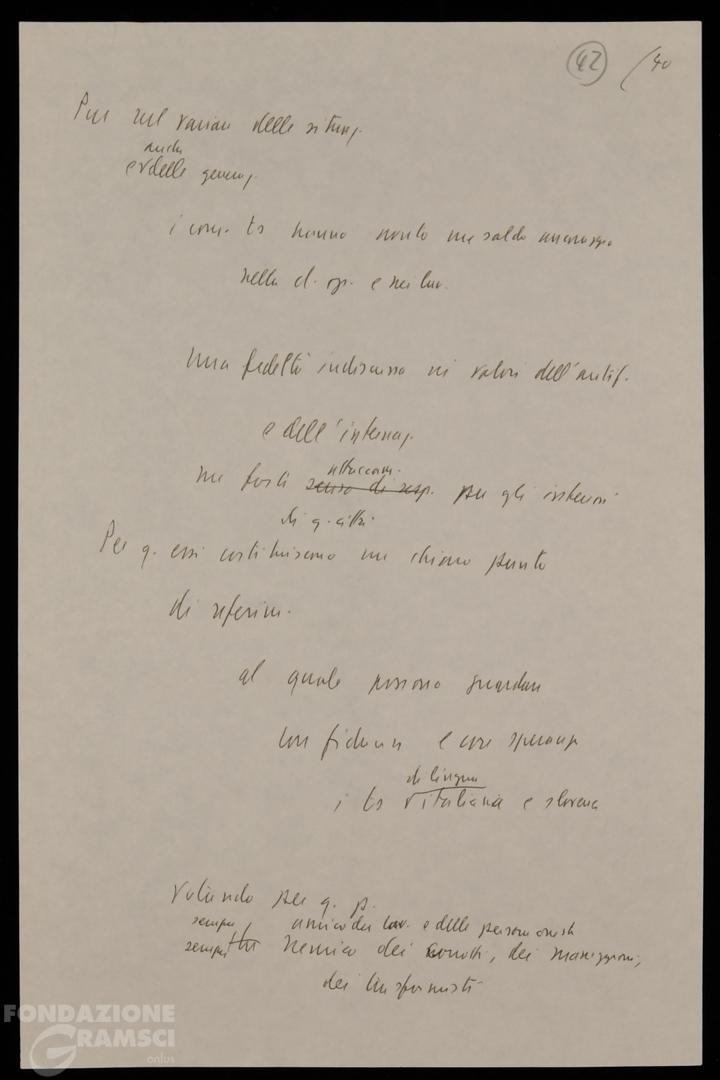 42 /40
Pur nel variare delle situaz.
anche
e delle generaz.
i com. ts hanno avuto un saldo ancoraggio
nella cl. op. e nei lav.
una fedeltà indiscussa ai valori dell'antif.
e dell'internaz.
attaccam.
un forte senso di resp. per gli interessi
di q. città
Per q. essi costituiscono un chiaro punto
di riferim.
al quale possono guardare
con fiducia e con speranza
di lingua
i ts italiana e slovena
Votando per q. p.
sempre amico dei lav. e delle persone oneste
sempre nemico dei corrotti, dei maneggioni,
dei trasformisti
FONDAZIONE
GRAMSCI
onlus